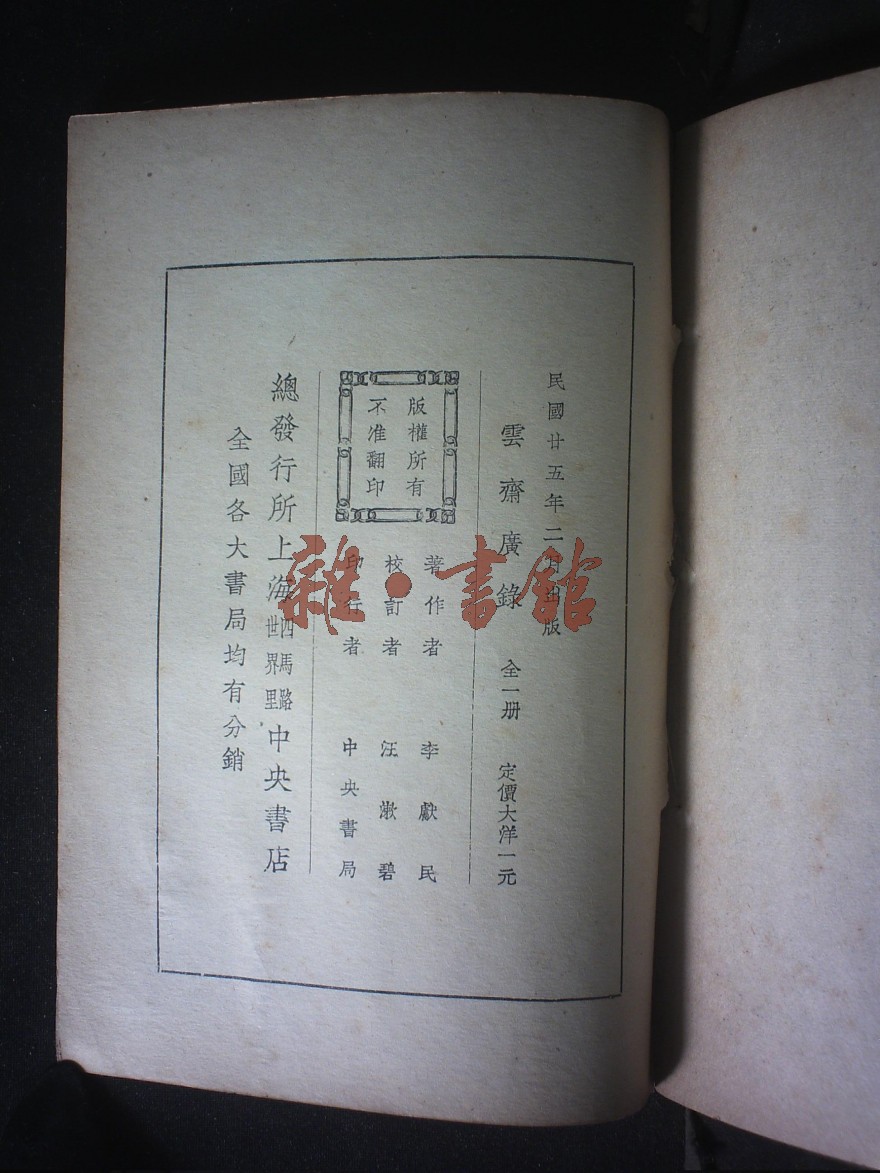 民國廿五年二月出版
雲齋廣錄 全一册 定價大洋一元
版權所有
不准翻印
著作者 李獻民
校訂者 汪漱碧
印行者 中央書局
總發行所上海四馬路世界里中央書店
全國各大書局均有分銷
雜·書館